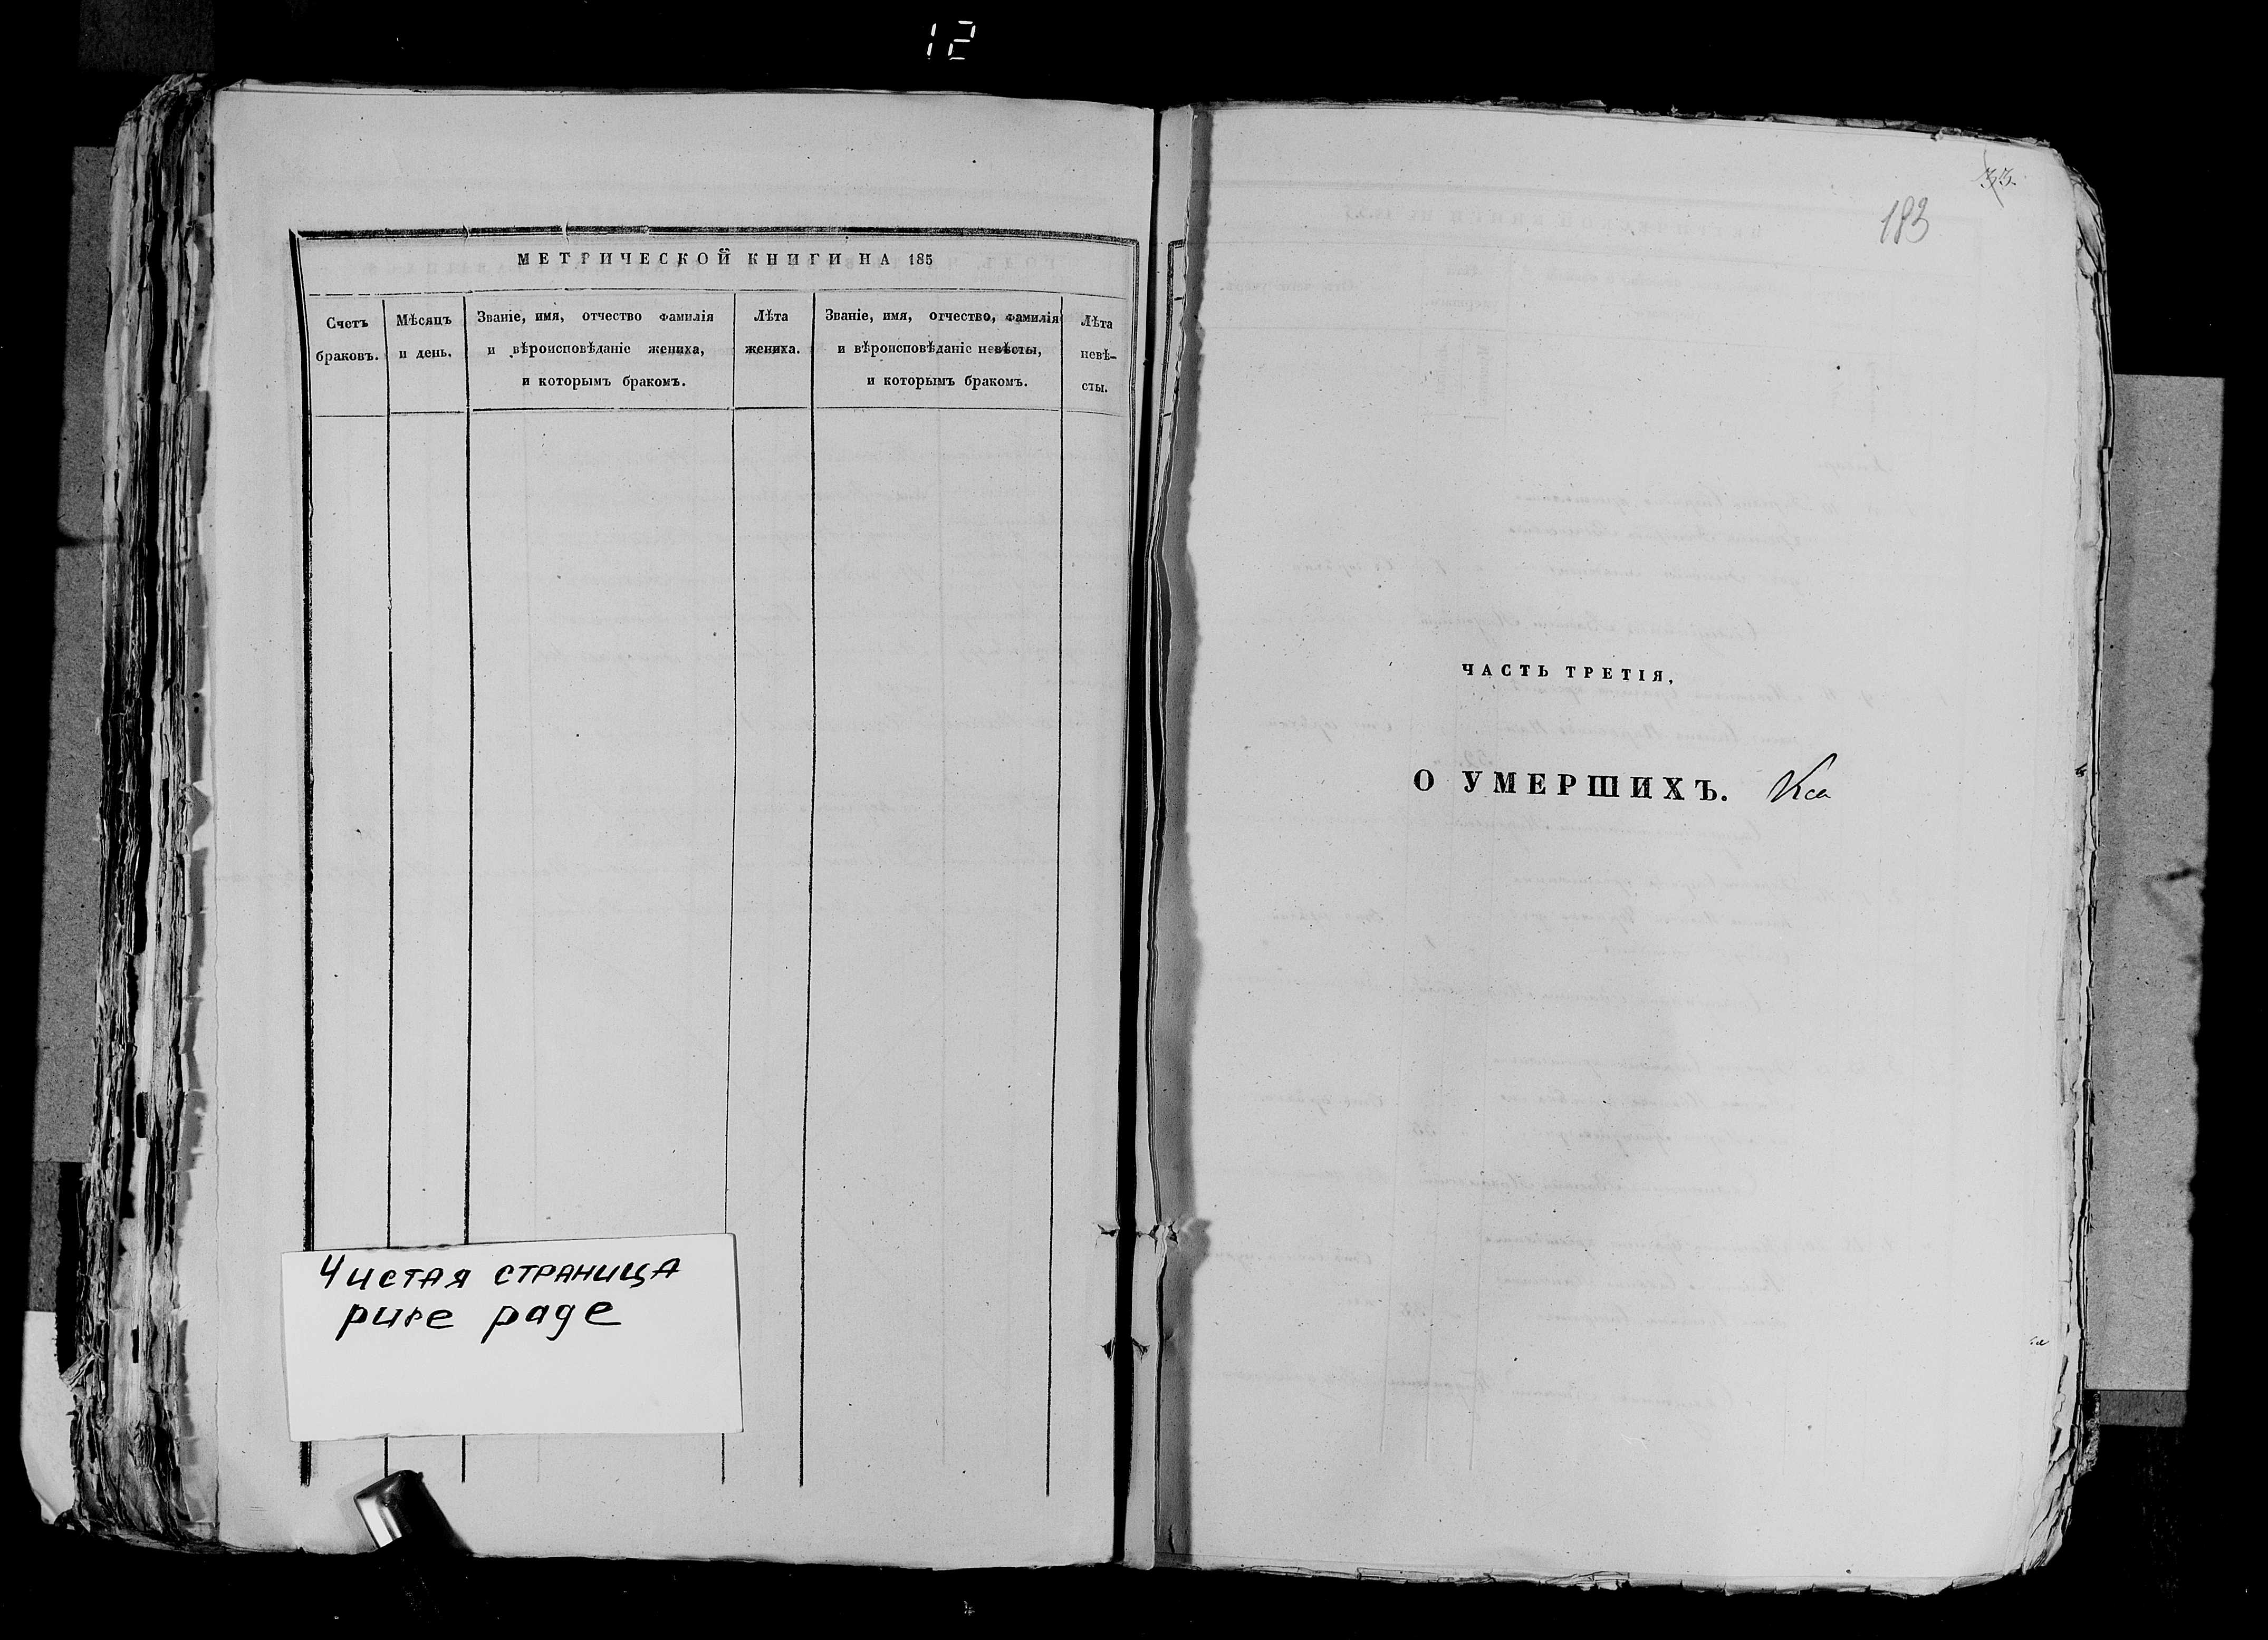 12
МЕТРИЧЕСКОЙ КНИГИ НА 185
Счетъ
браковъ.
Мѣсяцъ
и день.
Званіе, имя, отчество фамилія
и вѣроисповѣданіе жениха,
и которымъ бракомъ.
Лѣта
жениха.
Званіе, имя, отчество, фамилія
и вѣроисповѣданіе невѣсты,
и которымъ бракомъ.
Лѣта
невѣ-
сты.
Чистая страница
pure page
33.
183
ЧАСТЬ ТРЕТІЯ,
О УМЕРШИХЪ.